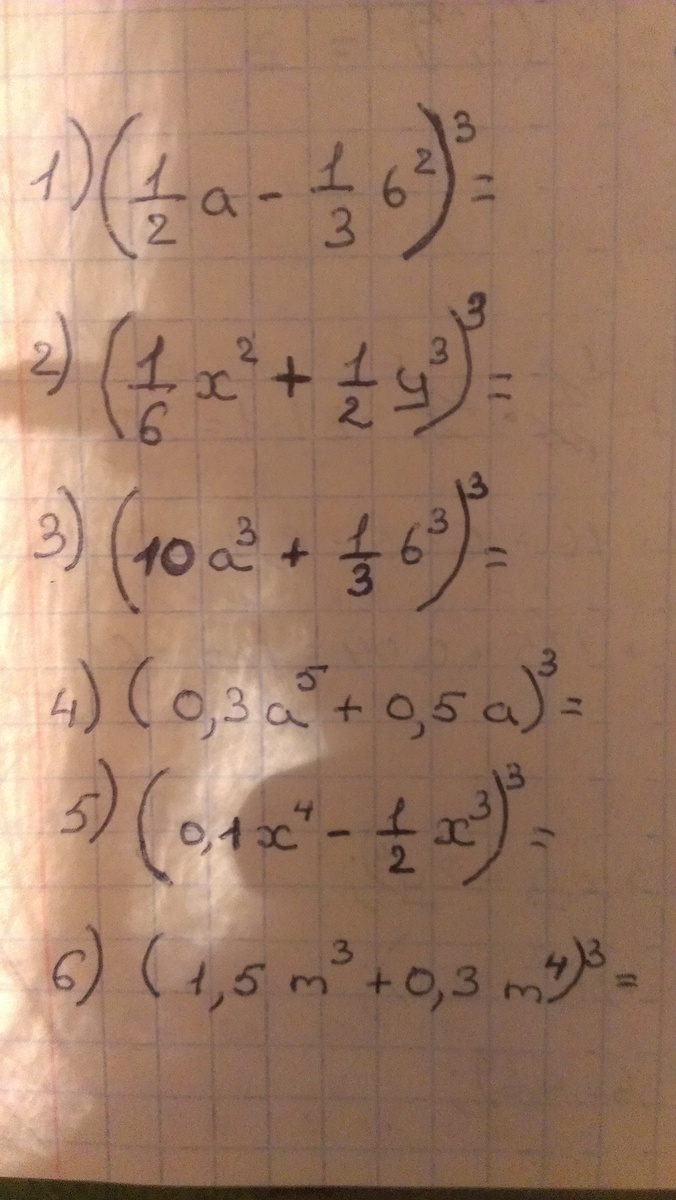 1) (1/2 a - 1/3 b²)³ =
2) (1/6 x² + 1/2 y³)³ =
3) (10 a³ + 1/3 b³)³ =
4) (0,3 a⁵ + 0,5 a)³ =
5) (0,1 x⁴ - 1/2 x³)³ =
6) (1,5 m³ + 0,3 m⁴)³ =